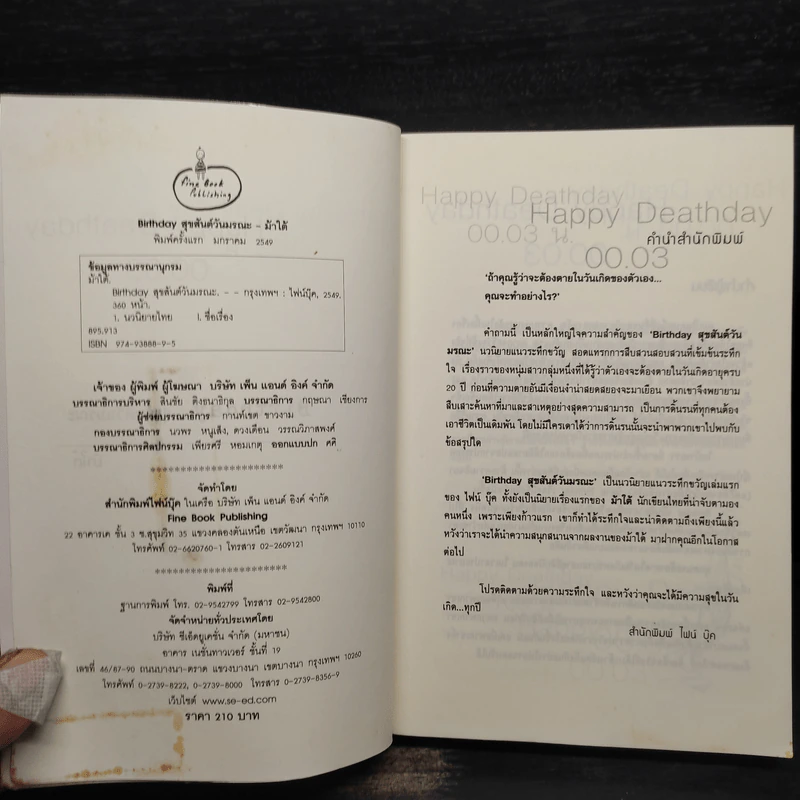 Fine Book
Publishing
Birthday สุขสันต์วันมรณะ - ม้าใต้
พิมพ์ครั้งแรก มกราคม 2549
ข้อมูลทางบรรณานุกรม
ม้าใต้.
Birthday สุขสันต์วันมรณะ. - - กรุงเทพฯ : ไฟน์บุ๊ค, 2549.
360 หน้า.
1. นวนิยายไทย I. ชื่อเรื่อง
895.913
ISBN 974-93888-9-5
เจ้าของ ผู้พิมพ์ ผู้โฆษณา บริษัท เพ็น แอนด์ อิงค์ จำกัด
บรรณาธิการบริหาร สินชัย ติงธนาธิกุล บรรณาธิการ กฤษณา เชียงการ
ผู้ช่วยบรรณาธิการ กานท์เขต ชาวงาม
กองบรรณาธิการ นวพร หนูเส็ง, ดวงเดือน วรรณวิภาสพงศ์
บรรณาธิการศิลปกรรม เพียรศรี หอมเกตุ ออกแบบปก คคิ
**********************
จัดทำโดย
สำนักพิมพ์ไฟน์บุ๊ค ในเครือ บริษัท เพ็น แอนด์ อิงค์ จำกัด
Fine Book Publishing
22 อาคารเค ชั้น 3 ซ.สุขุมวิท 35 แขวงคลองตันเหนือ เขตวัฒนา กรุงเทพฯ 10110
โทรศัพท์ 02-6620760-1 โทรสาร 02-2609121
**********************
พิมพ์ที่
ฐานการพิมพ์ โทร. 02-9542799 โทรสาร 02-9542800
จัดจำหน่ายทั่วประเทศโดย
บริษัท ซีเอ็ดยูเคชั่น จำกัด (มหาชน)
อาคาร เนชั่นทาวเวอร์ ชั้นที่ 19
เลขที่ 46/87-90 ถนนบางนา-ตราด แขวงบางนา เขตบางนา กรุงเทพฯ 10260
โทรศัพท์ 0-2739-8222, 0-2739-8000 โทรสาร 0-2739-8356-9
เว็บไซต์ www.se-ed.com
ราคา 210 บาท
Happy Deathday
Happy Deathday
00.03 น.
คำนำสำนักพิมพ์
00.03
'ถ้าคุณรู้ว่าจะต้องตายในวันเกิดของตัวเอง...
คุณจะทำอย่างไร?'
คำถามนี้ เป็นหลักใหญ่ใจความสำคัญของ 'Birthday สุขสันต์วัน
มรณะ' นวนิยายแนวระทึกขวัญ สอดแทรกการสืบสวนสอบสวนที่เข้มข้นระทึก
ใจ เรื่องราวของหนุ่มสาวกลุ่มหนึ่งที่ได้รู้ว่าตัวเองจะต้องตายในวันเกิดอายุครบ
20 ปี ก่อนที่ความตายอันมีเงื่อนงำน่าสยดสยองจะมาเยือน พวกเขาจึงพยายาม
สืบเสาะค้นหาที่มาและสาเหตุอย่างสุดความสามารถ เป็นการดิ้นรนที่ทุกคนต้อง
เอาชีวิตเป็นเดิมพัน โดยไม่มีใครเดาได้ว่าการดิ้นรนนั้นจะนำพาพวกเขาไปพบกับ
ข้อสรุปใด
'Birthday สุขสันต์วันมรณะ' เป็นนวนิยายแนวระทึกขวัญเล่มแรก
ของ ไฟน์ บุ๊ค ทั้งยังเป็นนิยายเรื่องแรกของ ม้าใต้ นักเขียนไทยที่น่าจับตามอง
คนหนึ่ง เพราะเพียงก้าวแรก เขาก็ทำได้ระทึกใจและน่าติดตามถึงเพียงนี้แล้ว
หวังว่าเราจะได้นำความสนุกสนานจากผลงานของม้าใต้ มาฝากคุณอีกในโอกาส
ต่อไป
โปรดติดตามด้วยความระทึกใจ และหวังว่าคุณจะได้มีความสุขในวัน
เกิด...ทุกปี
สำนักพิมพ์ ไฟน์ บุ๊ค